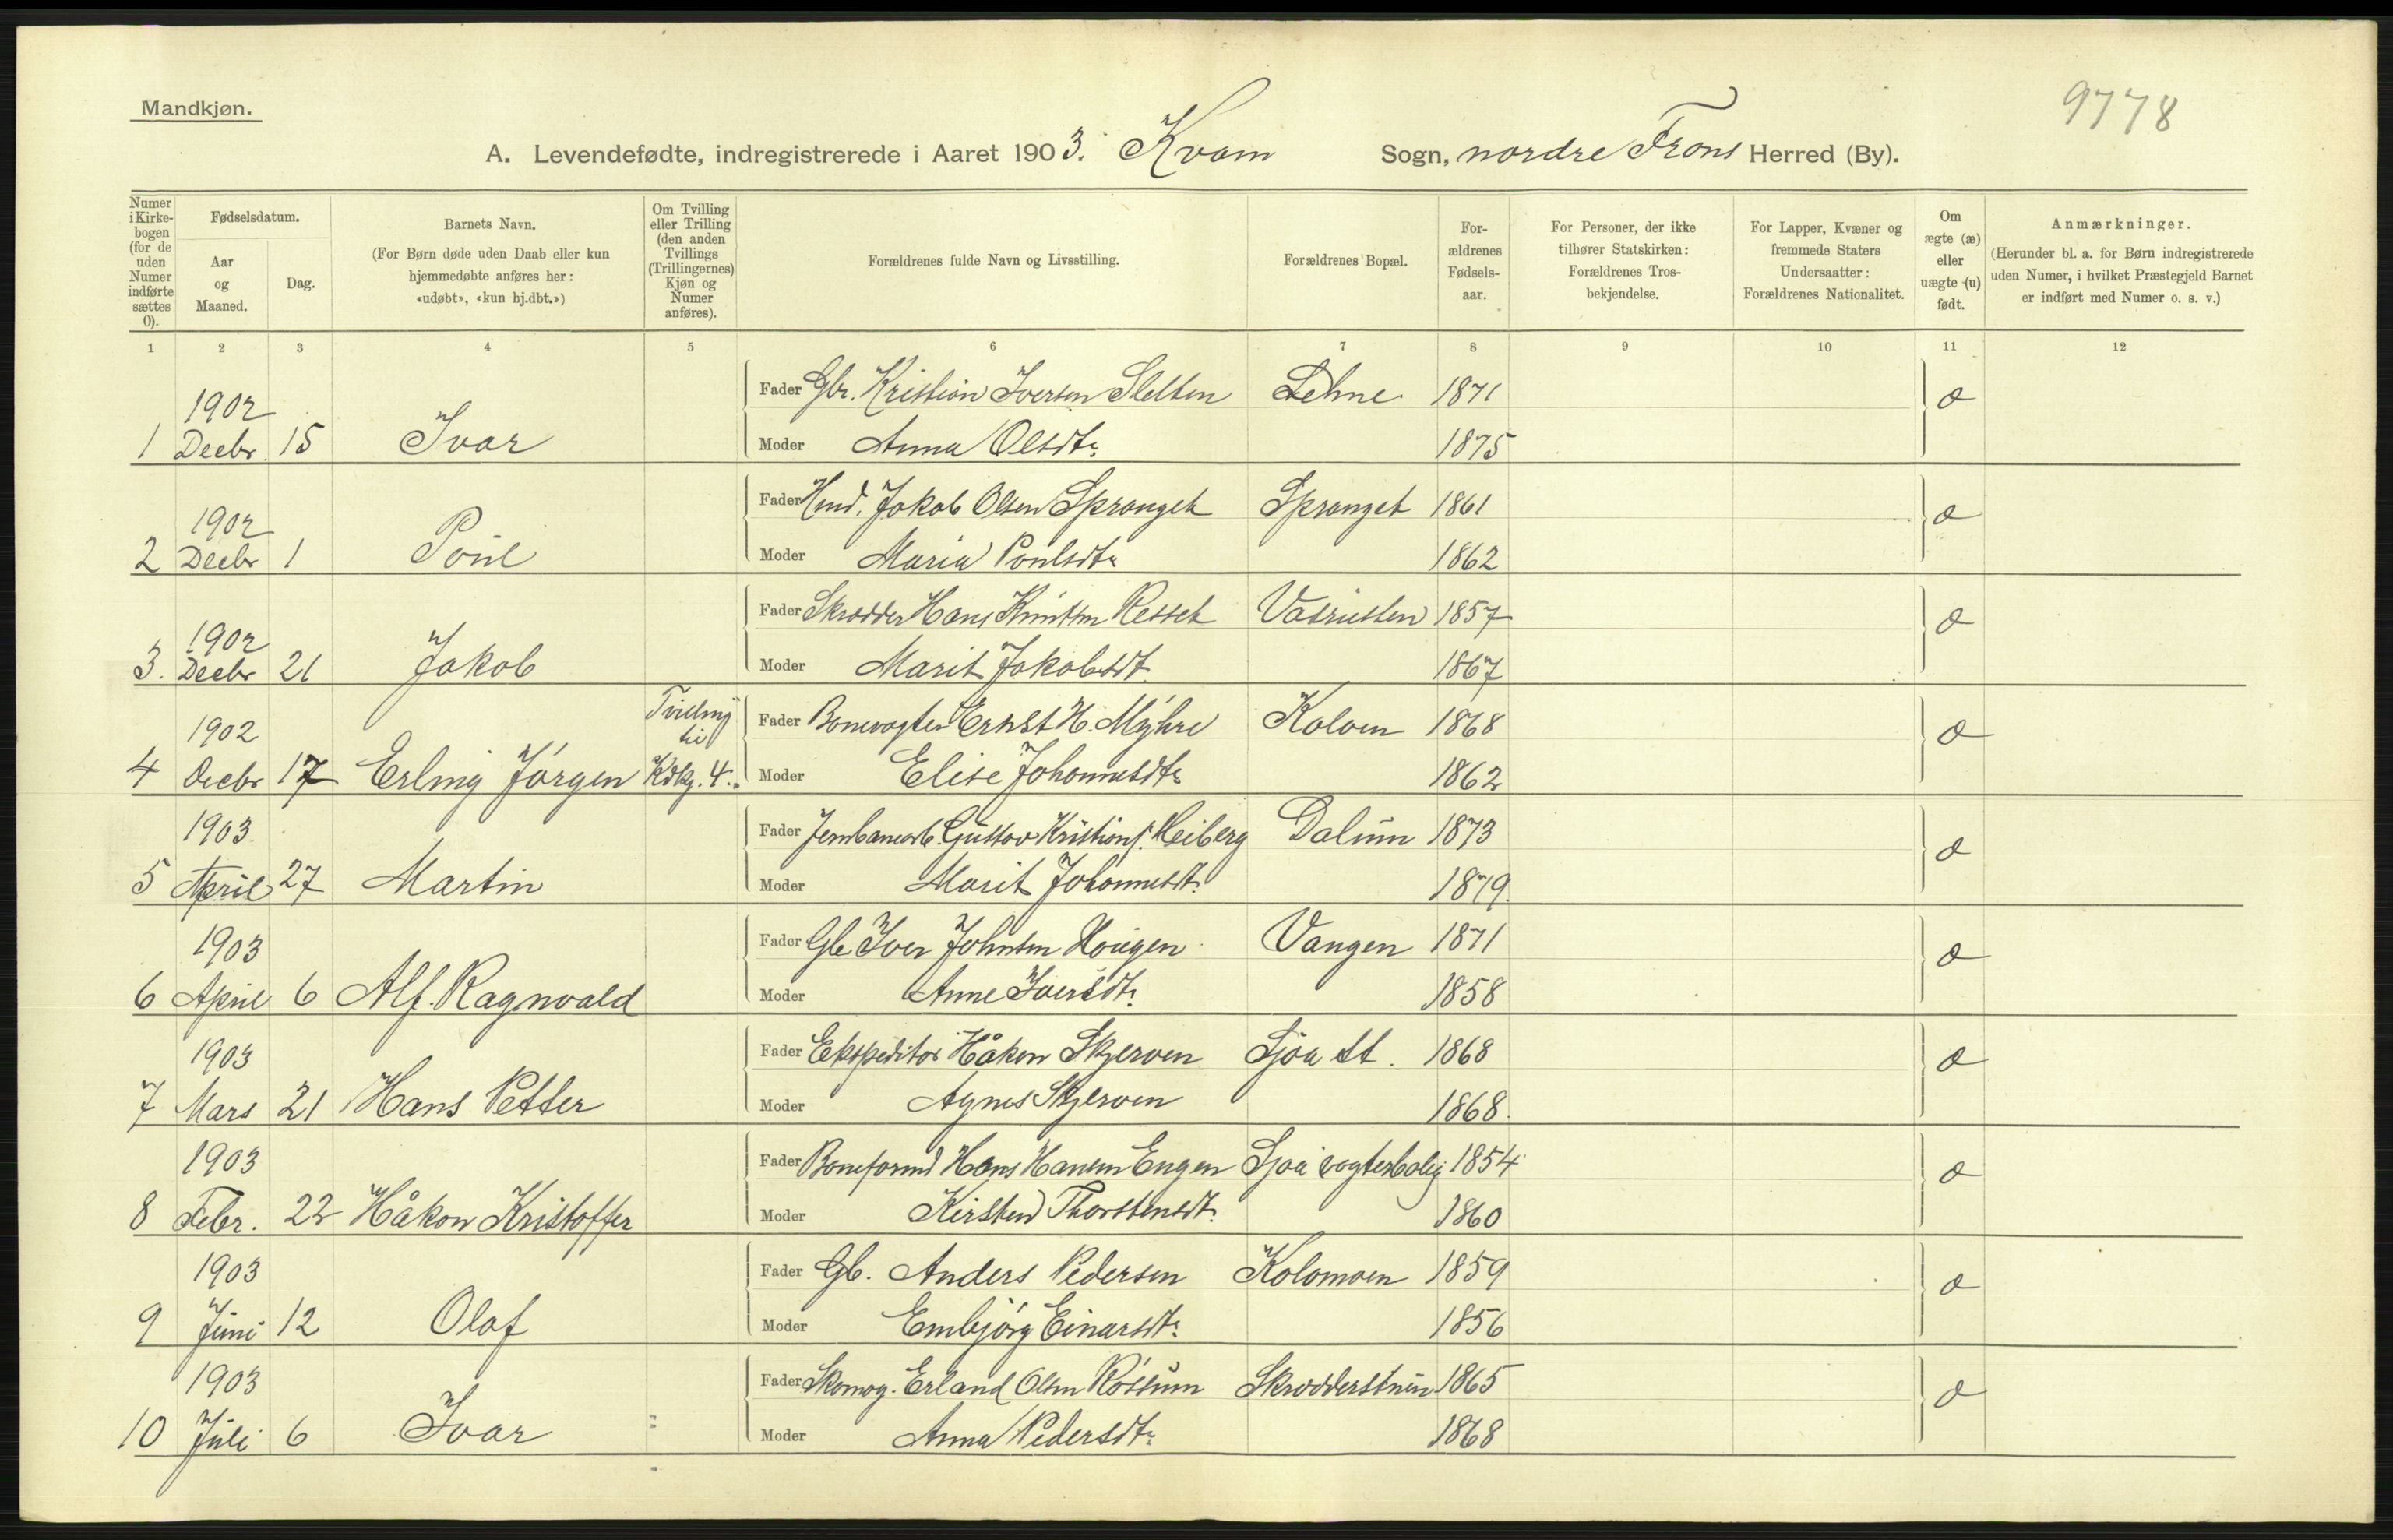 Mandkjøn.
9778
A. Levendefødte, indregistrerede i Aaret 1903. Kvam Sogn, nordre Frons Herred (By).
Numer i Kirkebogen (for de uden Numer indførte sættes 0).
Fødselsdatum.
Aar og Maaned.
Dag.
Barnets Navn.
(For Børn døde uden Daab eller kun hjemmedøbte anføres her: «udøbt», «kun hj.dbt.»)
Om Tvilling eller Trilling (den anden Tvillings (Trillingernes) Kjøn og Numer anføres).
Forældrenes fulde Navn og Livsstilling.
Forældrenes Bopæl.
Forældrenes Fødselsaar.
For Personer, der ikke tilhører Statskirken: Forældrenes Trosbekjendelse.
For Lapper, Kvæner og fremmede Staters Undersaatter: Forældrenes Nationalitet.
Om ægte (æ) eller uægte (u) født.
Anmærkninger.
(Herunder bl. a. for Børn indregistrerede uden Numer, i hvilket Præstegjeld Barnet er indført med Numer o. s. v.)
1 2 3 4 5 6 7 8 9 10 11 12
1902 Fader Gbr. Kristian Iversen Sletten Lehne 1871 æ
1 Decbr 15 Ivar Moder Anna Olsdtr 1875
1902 Fader Hmd. Jakob Olsen Spranget Spranget 1861 æ
2 Decbr 1 Poul Moder Maria Poulsdtr 1862
1902 Fader Skrædder Hans Knutsen Resset Vasrusten 1857 æ
3. Decbr 21 Jakob Moder Marit Jakobsdt 1867
1902 Tvilling til Fader Banevogter Ernst H. Myhre Kolven 1868 æ
4 Decbr 17 Erling Jörgen Kvkj. 4. Moder Elise Johannesdtr 1862
1903 Fader Jernbanearb. Gustav Kristians. Heiberg Dalum 1873 æ
5 April 27 Martin Moder Marit Johannesdt. 1879.
1903 Fader Gb Iver Johnsen Haugen Vangen 1871 æ
6 April 6 Alf. Ragnvald Moder Anne Iversdt. 1858
1903 Fader Ekspeditør Håken Skjerven Sjoa St. 1868 æ
7 Mars 21 Hans Petter Moder Agnes Skjerven 1868.
1903 Fader Baneformd Hans Hansen Engen Sjoa vogterbolig 1854 æ
8 Febr. 22 Håkon Kristoffer Moder Kirsten Thorstensdt. 1860
1903 Fader Gb. Anders Pedersen Kolomoen 1859 æ
9 Juni 12 Olaf Moder Embjörg Einarsdt. 1856
1903 Fader Skomag. Erland Olsen Rossum Skrædderstuen 1865 æ
10 Juli 6 Ivar Moder Anna Pedersdt. 1868